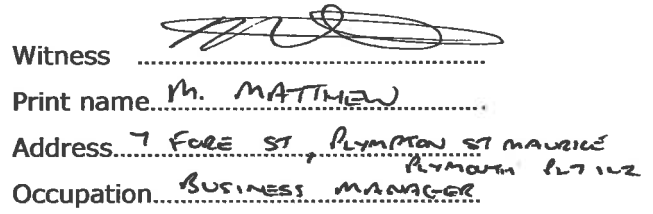 Witness
Print name M. MATTHEW
Address 7 FORE ST, PLYMPTON ST MAURICE
PLYMOUTH PL7 1LZ
Occupation BUSINESS MANAGER